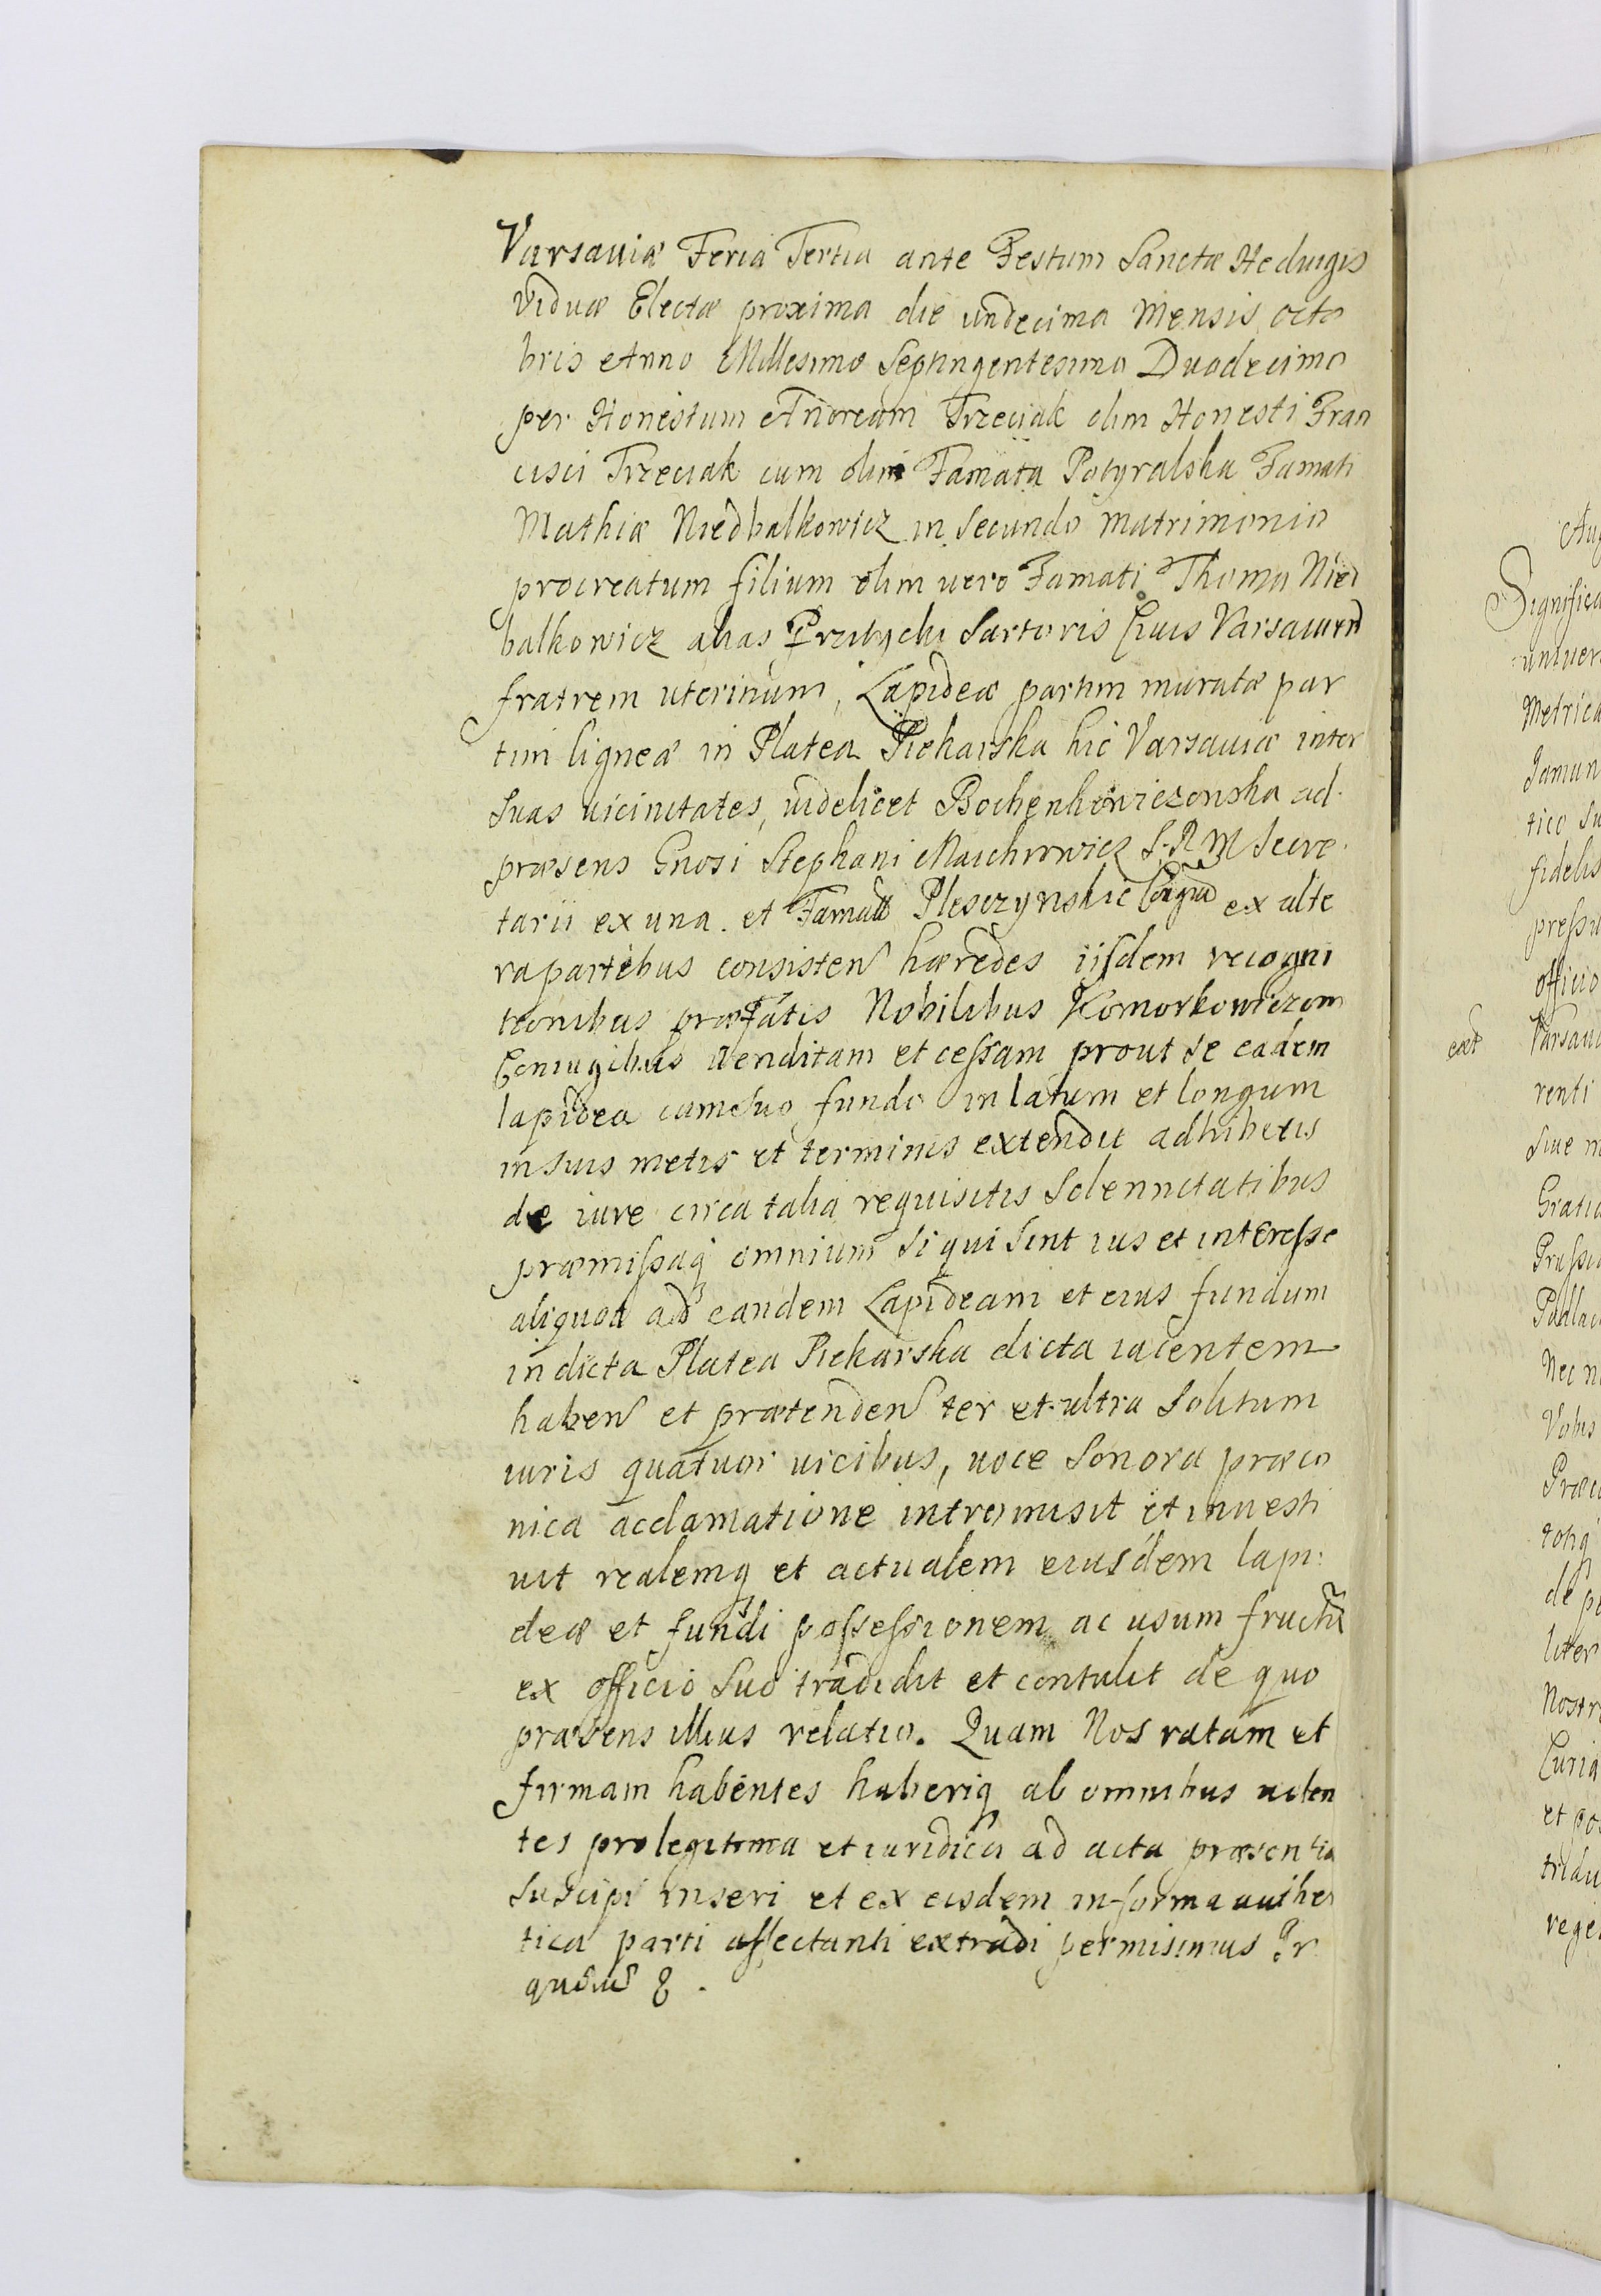 Varsaviæ Feria Tertia ante Festum Sanctæ Heduigis
Viduæ Electæ proxima die undecima Mensis octo
bris Anno Millesimo Septingentesimo Duodecimo
per Honestum Andream Trzeciak olim Honesti Fran
cisci Trzeciak cum olim Famata Potyralska Famati
Mathiæ Niedbalkowicz in secundo matrimonio
procreatum filium olim uero Famati Thomæ Nied
balkowicz alias Przybycki Sartoris Ciuis Varsauien
fratrem uterinum, Lapideæ partim muratæ par
tim ligneæ in Platea Piekarska hic Varsauiæ inter
suas uicinitates, uidelicet Bochenkowiczonska ad
præsens Gnosi Stephani Maichrowicz S.R.M Secre
tarii ex una. et Famatæ Plesczynskie Coniugū ex alte
ra partibus consisten hæredes iisdem recogni
tionibus præfatis Nobilibus Komorkowiczom
Coniugibus uenditam et cessam prout se eadem
lapidea cum suo fundo in latum et longum
in suis metis et terminis extendit adhibitis
de iure circa talia requisitis Solennitatibus
præmissaq omnium si qui sint ius et interesse
aliquod ad eandem Lapideam et eius fundum
in dicta Platea Piekarska dicta iacentem
haben et prætenden ter et ultra Solitum
iuris quatuor uicibus, uoce Sonora præco
nica acclamatione intromisit et inuesti
uit realemq et actualem eiusdem lapi:
deæ et fundi possessionem ac usum fructū
ex officio suo tradidit et contulit de quo
præsens illius relatio. Quam Nos ratam et
firmam habentes haberiq ab omnibus uolen
tes pro legitima et iuridica ad acta præsentia
suscipi inseri et ex eisdem in forma authen
tica parti affectanti extradi permisimus Pr